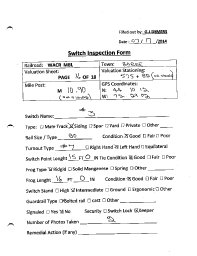 Filled out by: G.J.DIEMERS
Date: 07/17/2014
Switch Inspection Form
Railroad: WACR MBL Town: BARRE
Valuation Sheet: PAGE OF 18
Valuation Stationing: 575 + 80
Mile Post: M 10.90
GPS Coordinates:
N: 44 10 12
W: 72
Switch Name: #3
Type: □ Main Track ☒ Siding □ Spur □ Yard □ Private □ Other
Rail Size / Type 80 Condition ☒ Good □ Fair □ Poor
Turnout Type #7 □ Right Hand ☒ Left Hand □ Equilateral
Switch Point Length 15 FT 0 IN Tie Condition ☒ Good □ Fair □ Poor
Frog Type ☒ Rigid □ Solid Manganese □ Spring □ Other
Frog Length 15 FT 0 IN Condition ☒ Good □ Fair □ Poor
Switch Stand □ High ☒ Intermediate □ Ground □ Ergonomic □ Other
Guardrail Type □ Bolted rail □ Cast □ Other
Signaled □ Yes ☒ No Security □ Switch Lock ☒ Keeper
Number of Photos Taken
Remedial Action (if any)